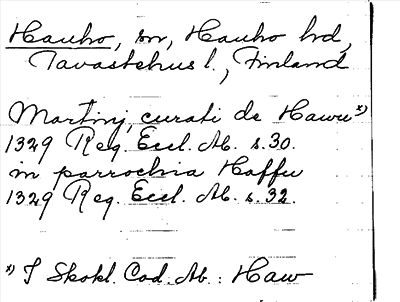 Hauho, sn, Hauho hd,
Tavastehus l., Finland
Martinj curati de Hawu x)
1329 Reg. Eccl. Ab. s. 30.
in parrochia Haffu
1329 Reg. Eccl. Ab. s. 32.
x) I Skokl. Cod. Ab.: Haw